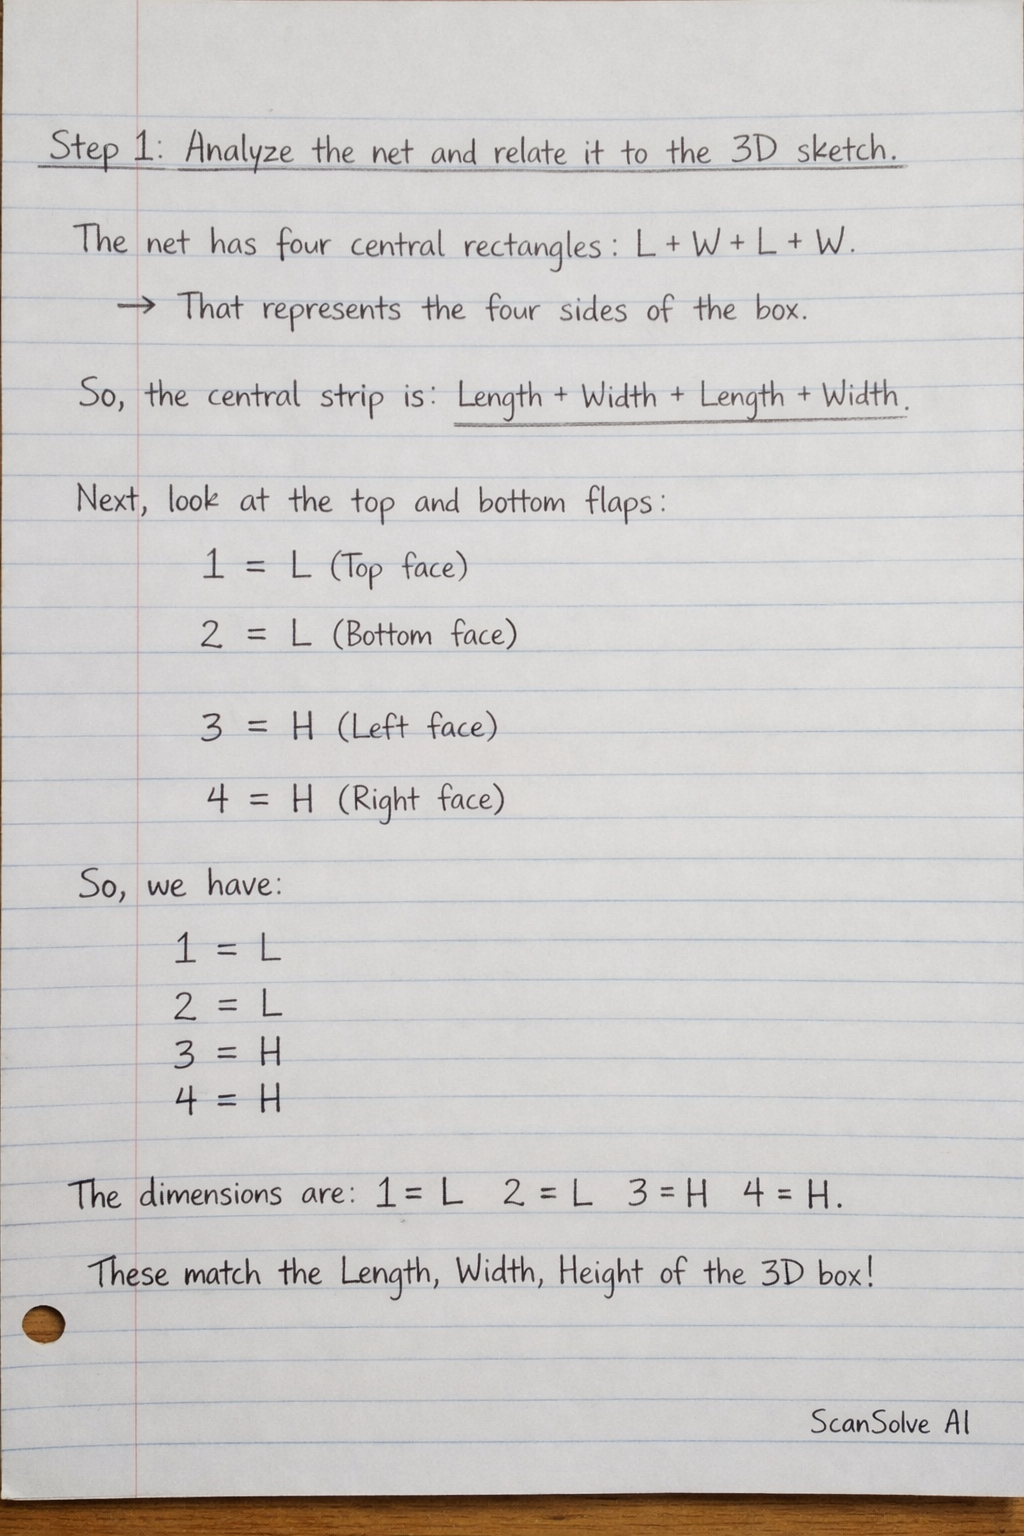 Step 1: Analyze the net and relate it to the 3D sketch.
The net has four central rectangles: L + W + L + W.
→ That represents the four sides of the box.
So, the central strip is: Length + Width + Length + Width.
Next, look at the top and bottom flaps:
1 = L (Top face)
2 = L (Bottom face)
3 = H (Left face)
4 = H (Right face)
So, we have:
1 = L
2 = L
3 = H
4 = H
The dimensions are: 1 = L 2 = L 3 = H 4 = H.
These match the Length, Width, Height of the 3D box!
ScanSolve AI